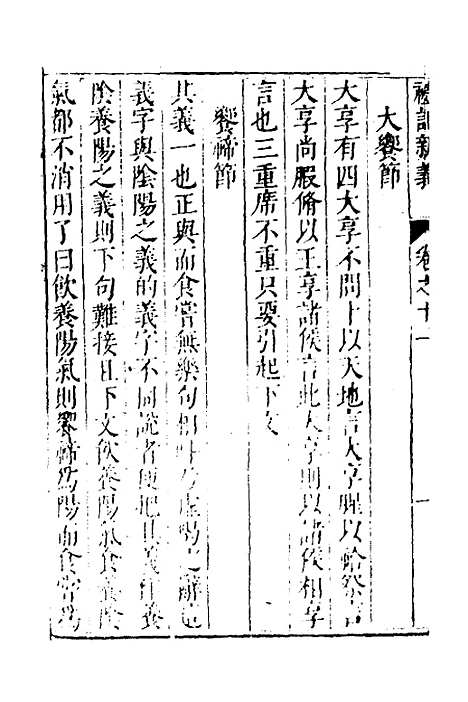 禮記新義 卷之十一 一
大饗節
大享有四大享不問卜以天地言大享腥以祫祭言
大享尚腶脩以王享諸侯言此大享則以諸侯相享
言也三重席不重只要引起下文
饗禘節
其義一也正與而食嘗無樂句相叫乃虛喝之辭也
義字與陰陽之義的義字不同說者便把其義作養
陰養陽之義則下句難接且下文飲養陽氣食養陰
氣都不消用了曰飲養陽氣則饗禘為陽而食嘗為